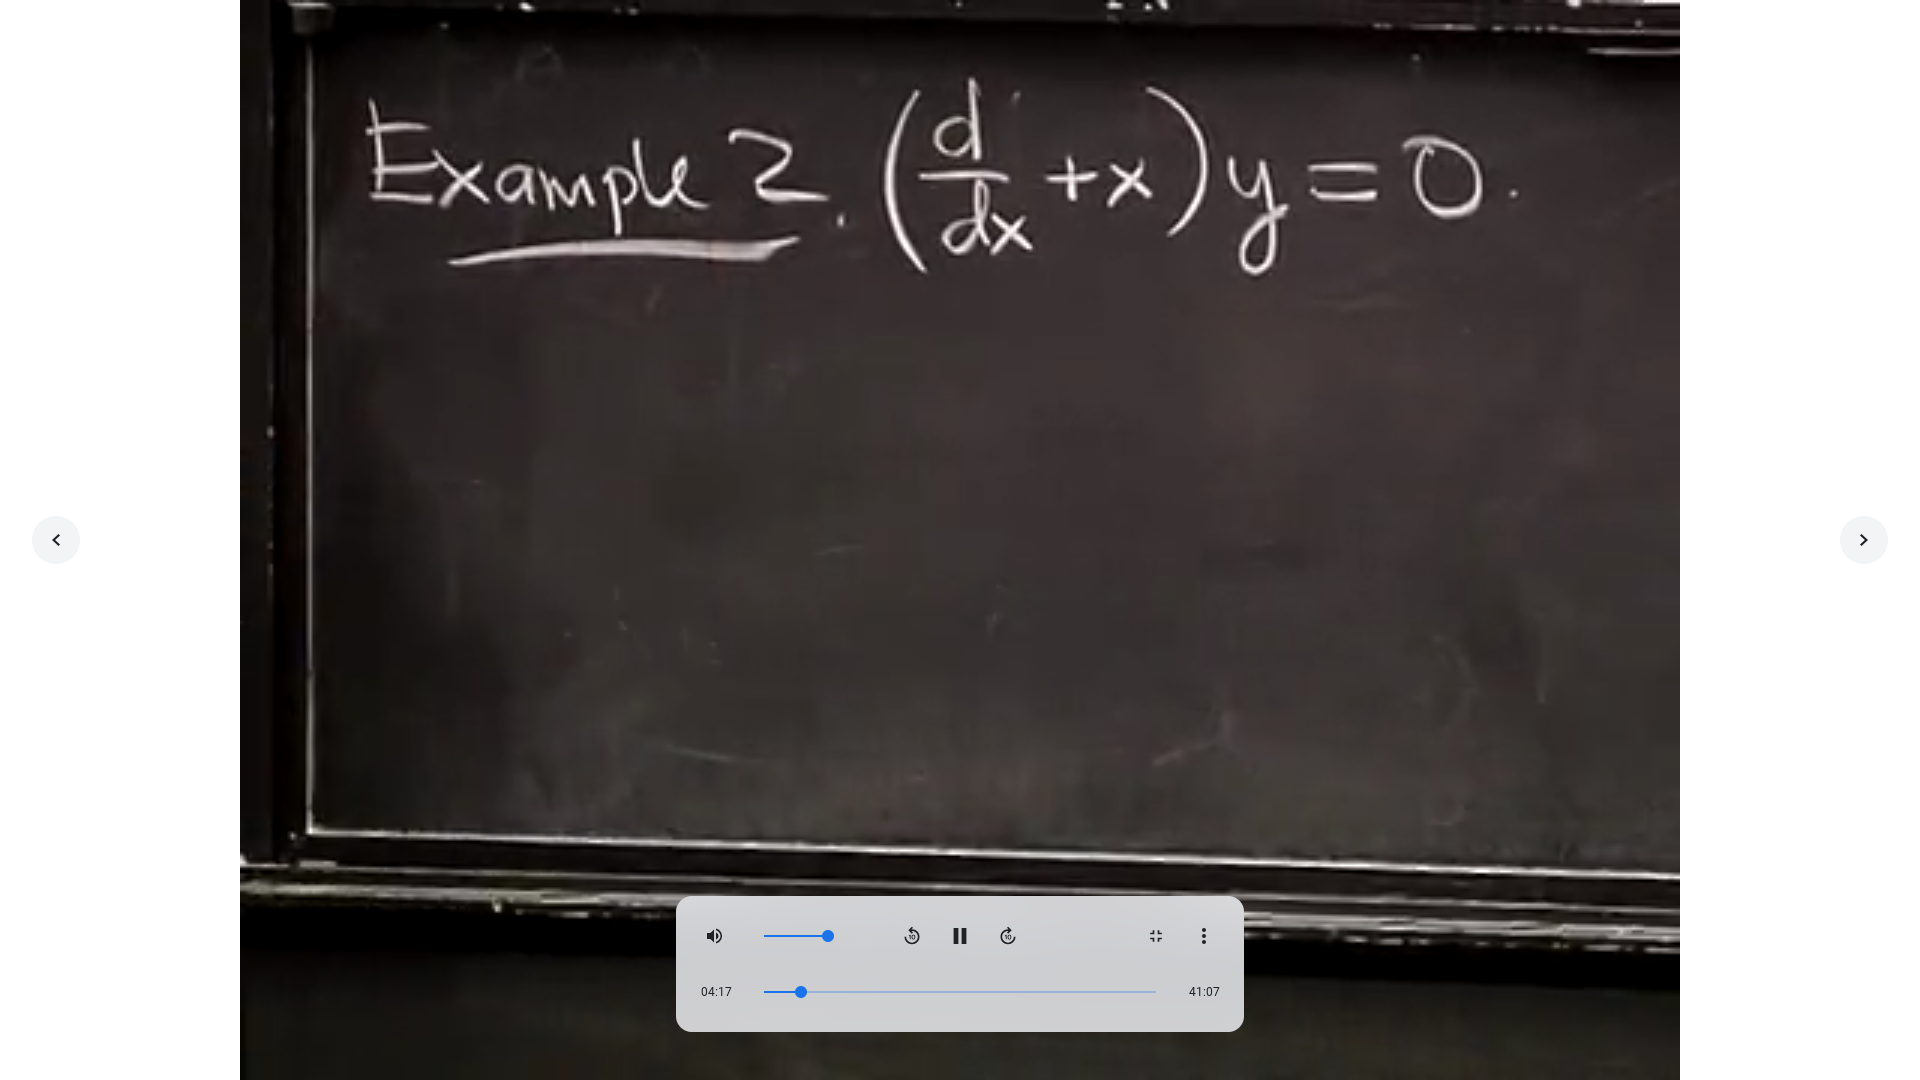 Example 2. (d/dx + x) y = 0.
04:17
41:07